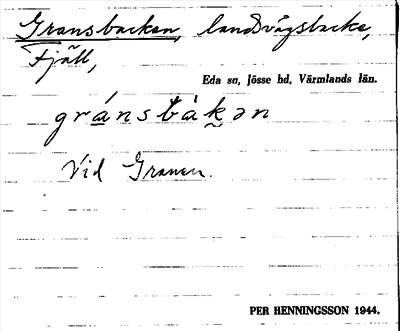 Gransbacken, landsvägsbacke,
Fjäll,
Eda sn, Jösse hd, Värmlands län.
gránsbàk̬ən
Vid Granen.
PER HENNINGSSON 1944.